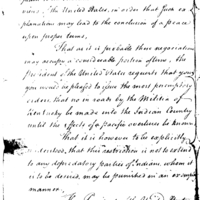 the United States, in order that such ex-
planation may lead to the conclusion of a peace
upon proper terms.
That as it is probable this negociation
may occupy a considerable portion of time, the
President of the United States requests that you
would be pleased to issue the most peremptory
orders that no inroads by the Militia of
Kentucky be made into the Indian Country
until the effects of a pacific overture be known.
That it is however to be explicitly
understood, that this restriction is not to extend
to any depredatory parties of Indians, whom it
is to be desired may be punished in an
manner.